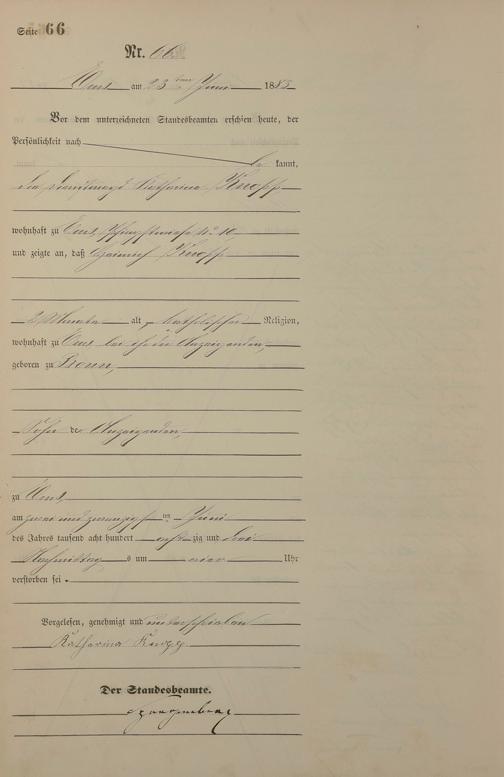 Seite 66
Nr. 66
Ems am 23 ten Juni 1883
Vor dem unterzeichneten Standesbeamten erschien heute, der
Persönlichkeit nach be kannt,
die Dienstmagd Katharina Knopp
wohnhaft zu Ems No 10,
und zeigte an, daß Heinrich Knopp
2 Monate alt, katholischer Religion,
wohnhaft zu Ems bei der Anzeigenden,
geboren zu Bonn,
Sohn der Anzeigenden,
zu Ems
am zwei und zwanzigsten Juni
des Jahres tausend acht hundert achtzig und drei
Nachmittags um vier Uhr
verstorben sei.
Vorgelesen, genehmigt und unterschrieben
Katharina Knopp
Der Standesbeamte.